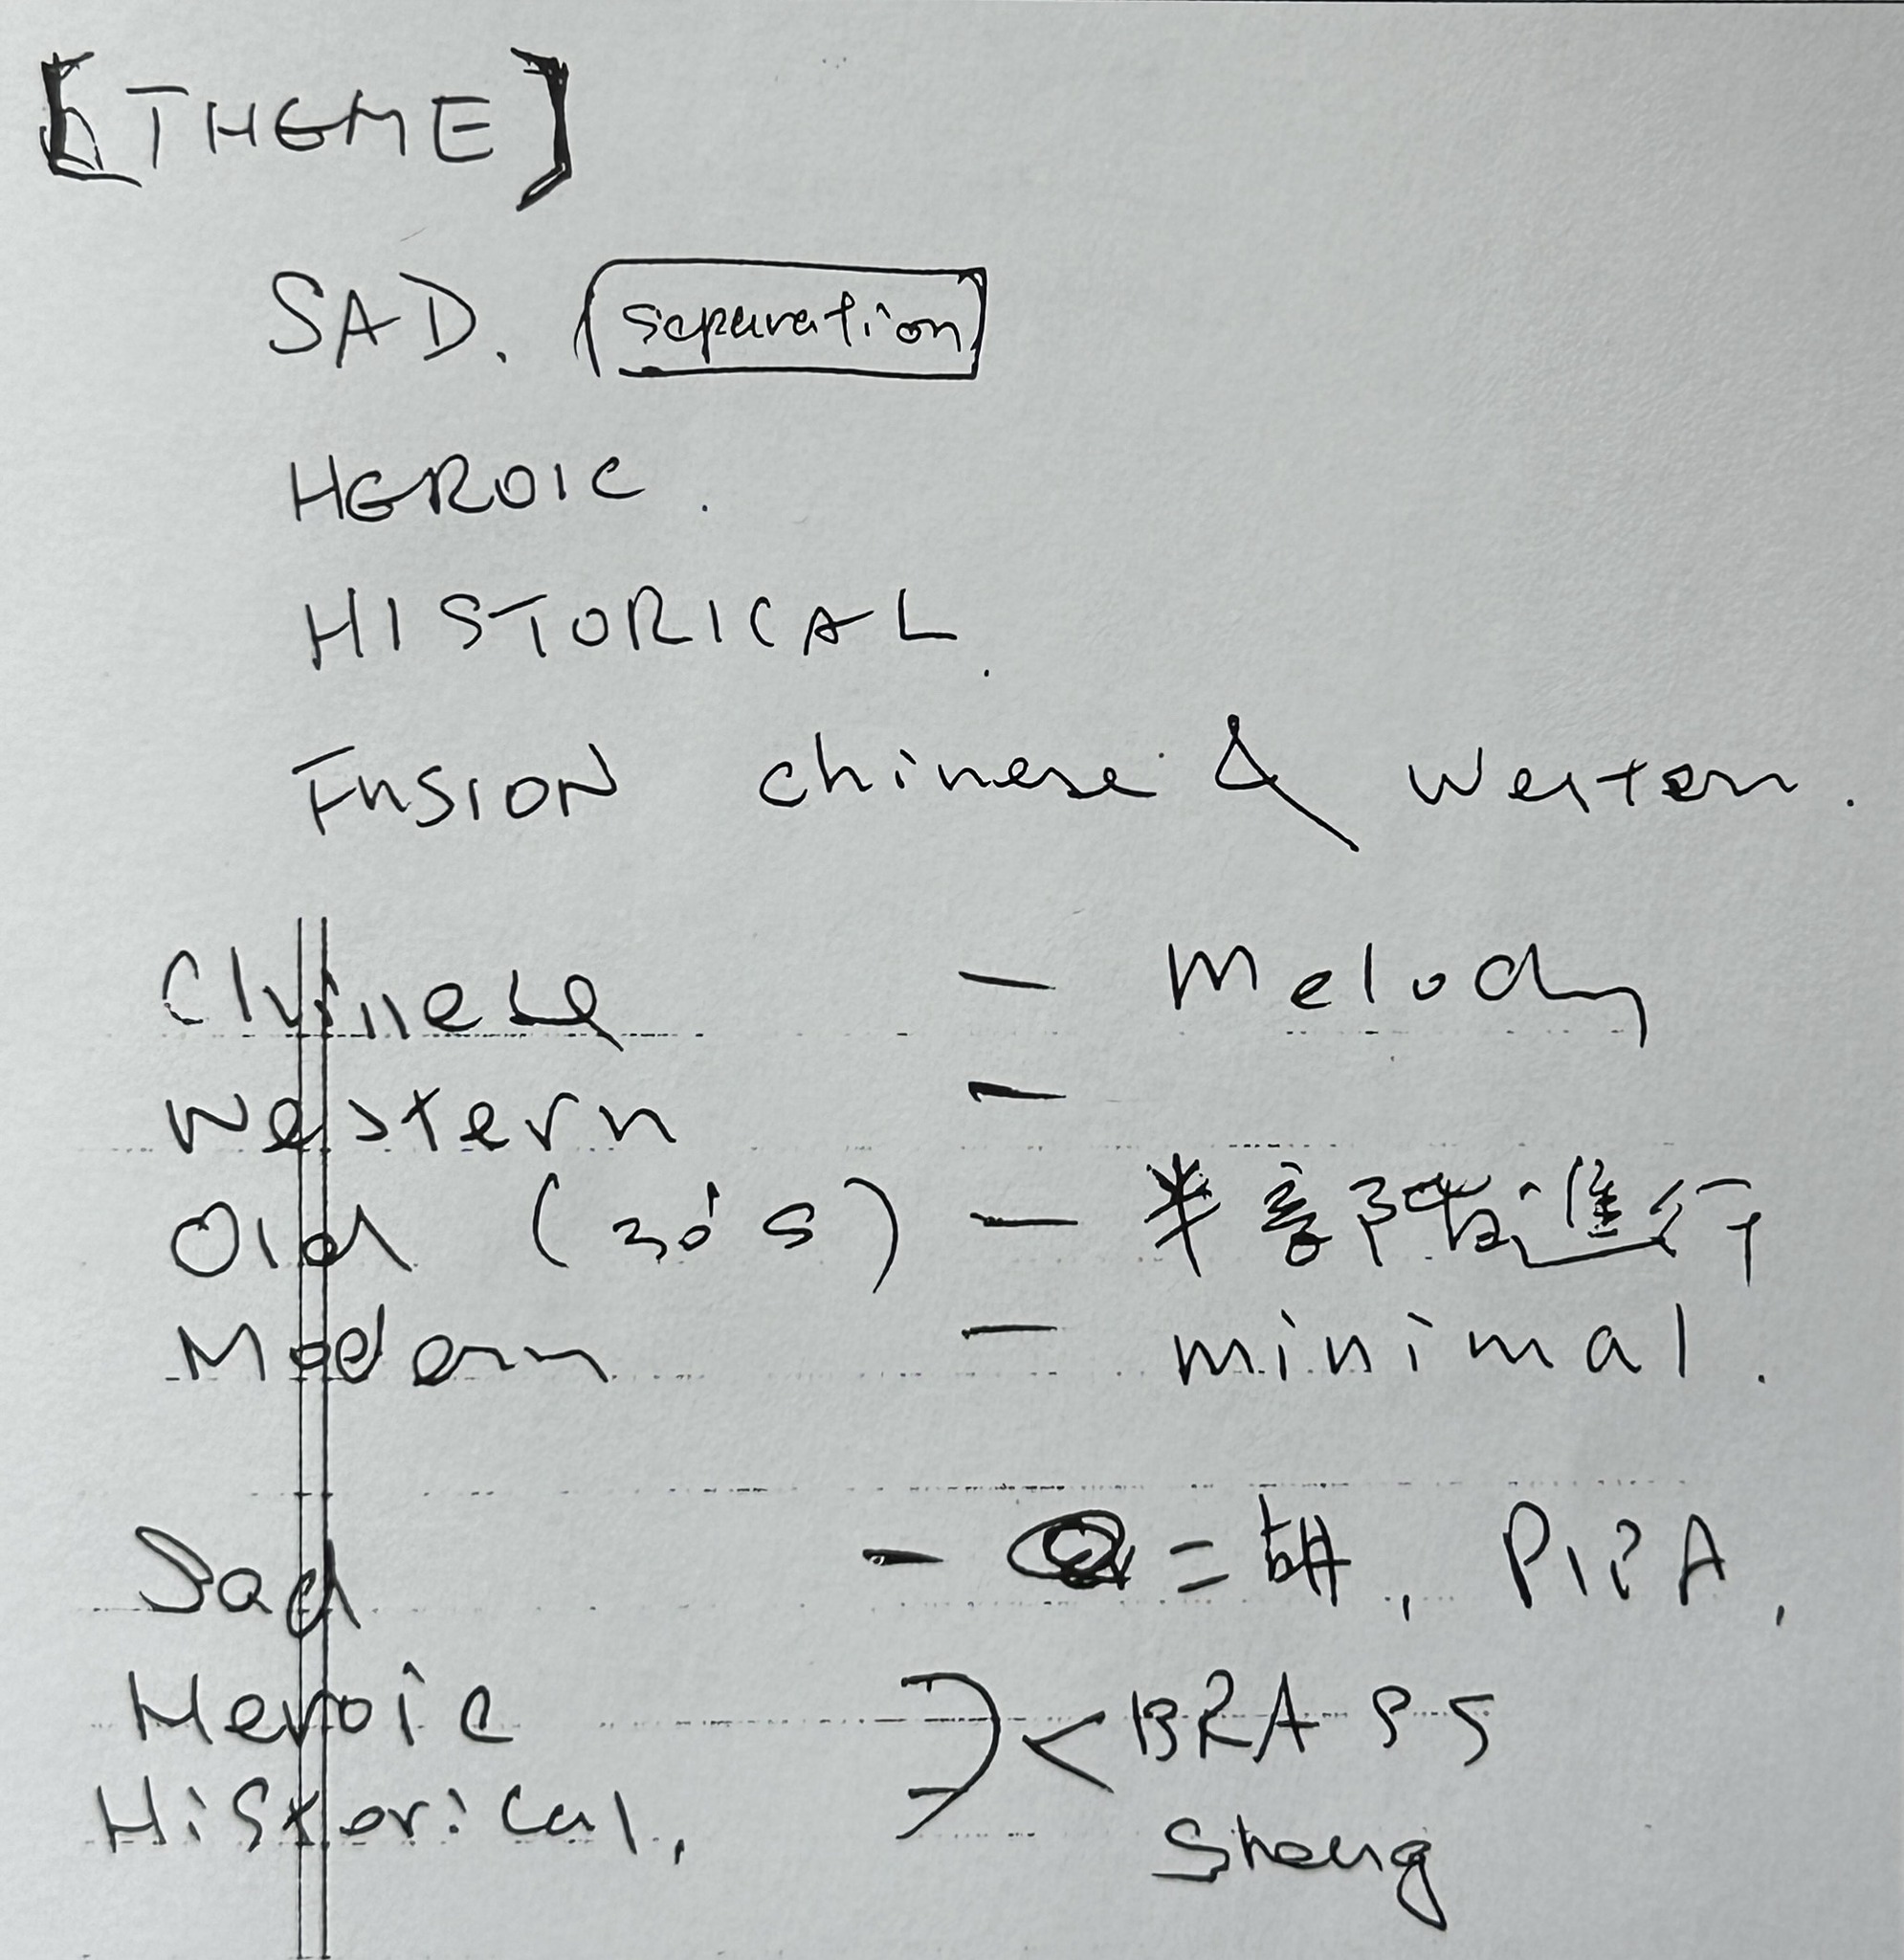 [THEME]
SAD. separation
HEROIC.
HISTORICAL.
FUSION chinese & western.
Chinese — Melody
western —
Old (30's) — 半音階進行
Modern — minimal.
Sad - 二胡, PIPA,
Heroic < BRASS
Historical, Sheng